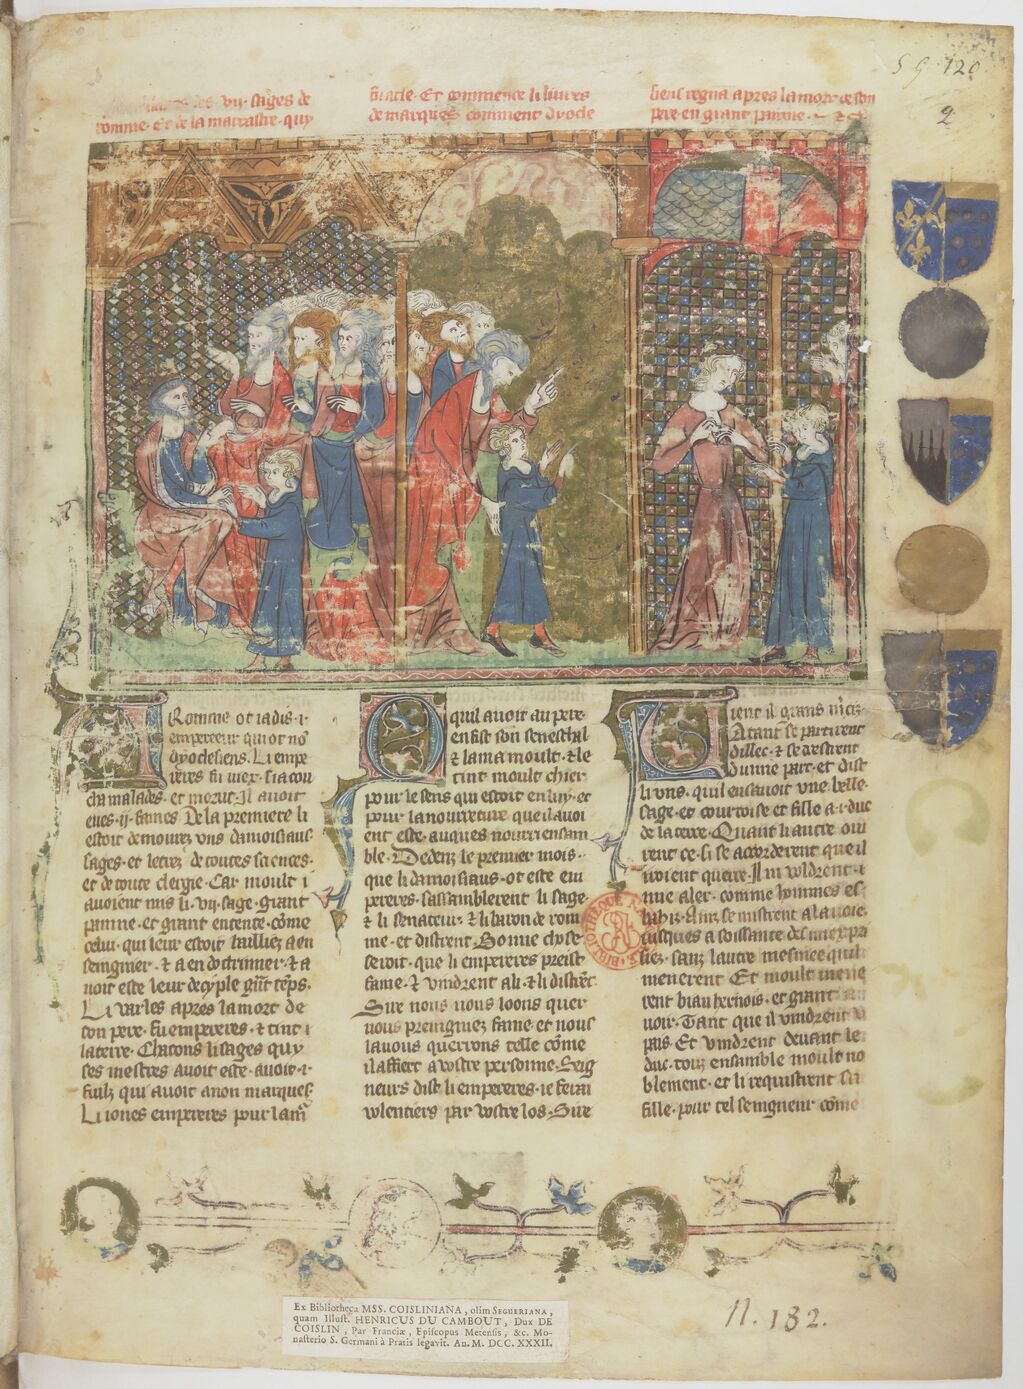 des .vij. sages de
romme. et de la marrastre. quy
fiacle. Et commence li liures
de marques comment dyocle
siens regna apres la mort de son
pere. en grant paroie.
S G 120
2
A Romme ot iadis .i.
empereeur qui ot nõ
dyoclesiens. Li empe
reres fu viex. si acou
cha malades. et morut. Il auoit
eues .ij. fames. De la premiere li
estoit demourez vns damoisiaus
sages. et letrez de toutes sciences.
et de toute clergie. Car moult i
auoient mis li .vij. sage. grant
painne. et grant entente. cõme
celui. qui leur estoit bailliez a en
seingnier. ⁊ a en doctriner. ⁊ a
uoit este leur deciple grãt tẽps.
Li varles apres la mort de
son pere. fu empereres. ⁊ tint i
la terre. Chatons li sages quy
ses mestres auoit este. auoit .i.
fuilz qui auoit a non marques.
Li iones empereres pour lam̃
Quil auoit au pere.
en fist son seneschal
⁊ lama moult. ⁊ le
tint moult chier
pour le sens qui estoit en luy. et
pour la nourreture que il auoi
ent este. auques nourri ensam
ble. Dedenz le premier mois.
que li damoisiaus. ot este em
pereres. sassamblerent li sage.
⁊ li senateur. ⁊ li baron de rom
me. et distrent. Bonne chose
seroit. que li empereres preist
fame. ⁊ vindrent a li. ⁊ li distrẽt
Sire nous uous loons quer
uous preingniez fame. et nous
la uous querrons telle cõme
il affiert a vostre personne. Seig
neurs dist li empereres. ie ferai
volentiers par vostre los. Sire
Tient il grans m̃ciz.
Atant se partirent
dillec. ⁊ se trestrent
dune part. et dist
li vns. quil en sauoit vne belle.
sage. et courtoise et fille a .i. duc
de la terre. Quant li autre oui
rent ce. si se acorderent que il
iroient querre. Il ni voldrent .i.
mie aler. comme hommes es
bahiz. Ainz se mistrent a la uoie.
iusques a soissante des miex pri
siez. sanz lautre mesnie quil
menerent Et moult mene
rent biau hernois. et grant
uoir. Tant que il vindrent
pais. Et vindrent deuant le
duc. touz ensamble moult no
blement. et li requistrent sa
fille. pour tel seingneur cõme
BIBLIOTHEQUE
Ex Bibliotheca MSS. COISLINIANA, olim SEGUERIANA,
quam Illust. HENRICUS DU CAMBOUT, Dux DE
COISLIN, Par Franciæ, Episcopus Metensis, &c. Mo-
nasterio S. Germani à Pratis legavit. An. M. DCC. XXXII.
N. 132.